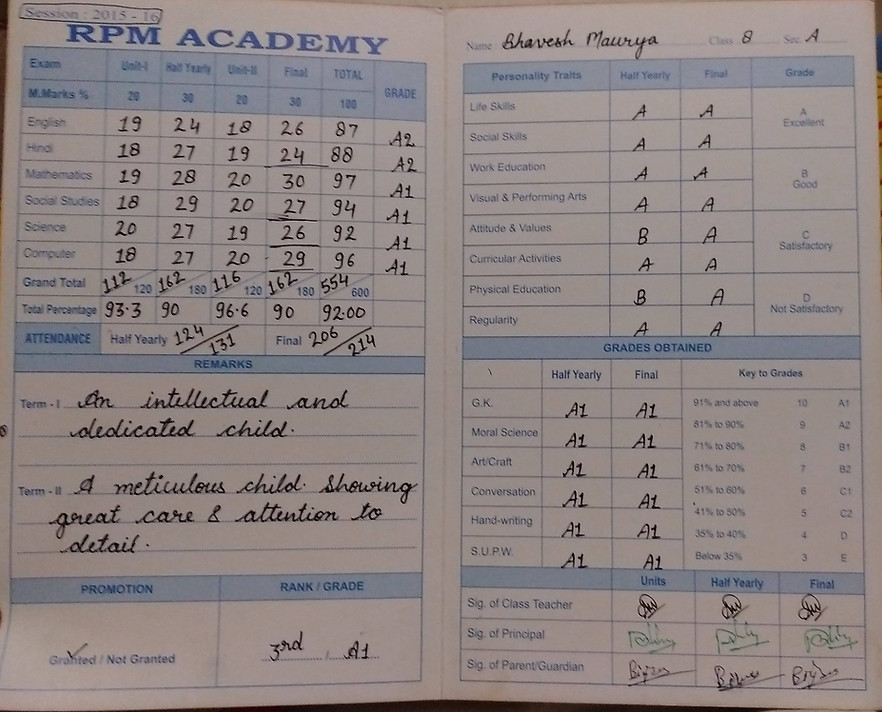 Session : 2015 - 16
RPM ACADEMY
Exam Unit-I Half Yearly Unit-II Final TOTAL GRADE
M.Marks % 20 30 20 30 100
English 19 24 18 26 87 A2
Hindi 18 27 19 24 88 A2
Mathematics 19 28 20 30 97 A1
Social Studies 18 29 20 27 94 A1
Science 20 27 19 26 92 A1
Computer 18 27 20 29 96 A1
Grand Total 112/120 162/180 116/120 162/180 554/600
Total Percentage 93.3 90 96.6 90 92.00
ATTENDANCE Half Yearly 124/131 Final 206/214
REMARKS
Term - I An intellectual and
dedicated child.
Term - II A meticulous child. Showing
great care & attention to
detail.
PROMOTION RANK / GRADE
Granted / Not Granted 3rd / A1
Name Bhavesh Maurya Class 8 Sec. A
Personality Traits Half Yearly Final Grade
Life Skills A A
A
Excellent
Social Skills A A
Work Education A A
B
Good
Visual & Performing Arts A A
Attitude & Values B A
C
Satisfactory
Curricular Activities A A
Physical Education B A
D
Not Satisfactory
Regularity A A
GRADES OBTAINED
Half Yearly Final Key to Grades
G.K. A1 A1 91% and above 10 A1
Moral Science A1 A1 81% to 90% 9 A2
71% to 80% 8 B1
Art/Craft A1 A1 61% to 70% 7 B2
Conversation A1 A1 51% to 60% 6 C1
41% to 50% 5 C2
Hand-writing A1 A1 35% to 40% 4 D
S.U.P.W. A1 A1 Below 35% 3 E
Units Half Yearly Final
Sig. of Class Teacher
Sig. of Principal
Sig. of Parent/Guardian